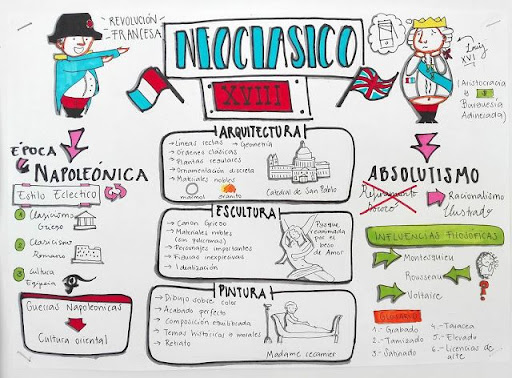 REVOLUCIÓN
FRANCESA
NEOCLASICO
XVIII
Louis
XVI
(Aristocracia
y
Burguesía
Adinerada)
EPOCA
NAPOLEÓNICA
Estilo Ecléctico
1 Clasicismo
Griego
2 Clasicismo
Romano
3 Cultura
Egipcia
Guerras Napoleónicas
Cultura oriental
ARQUITECTURA
→ Líneas rectas → Geometría
→ Ordenes clásicas
→ Plantas regulares
→ Ornamentación discreta
→ Materiales nobles
marmol
granito
Catedral de San Pablo
ESCULTURA
→ Canon Griego
→ Materiales nobles
→ Personajes importantes
→ Figuras inexpresivas
→ Idealización
Psique
reanimada por
el
beso
de Amor
PINTURA
→ Dibujo sobre color
→ Acabado perfecto
→ Composición equilibrada
→ Temas históricos o morales
→ Retrato
Madame recamier
ABSOLUTISMO
Refinamiento
Rococó
Racionalismo
Ilustrado
INFLUENCIAS FILOSÓFICAS
Montesquieu
Rousseau
Voltaire
Glosario
1.- Grabado
2.- Tamizado
3.- Satinado
4.- Taracea
5.- Elevado
6.- Licencias de
arte